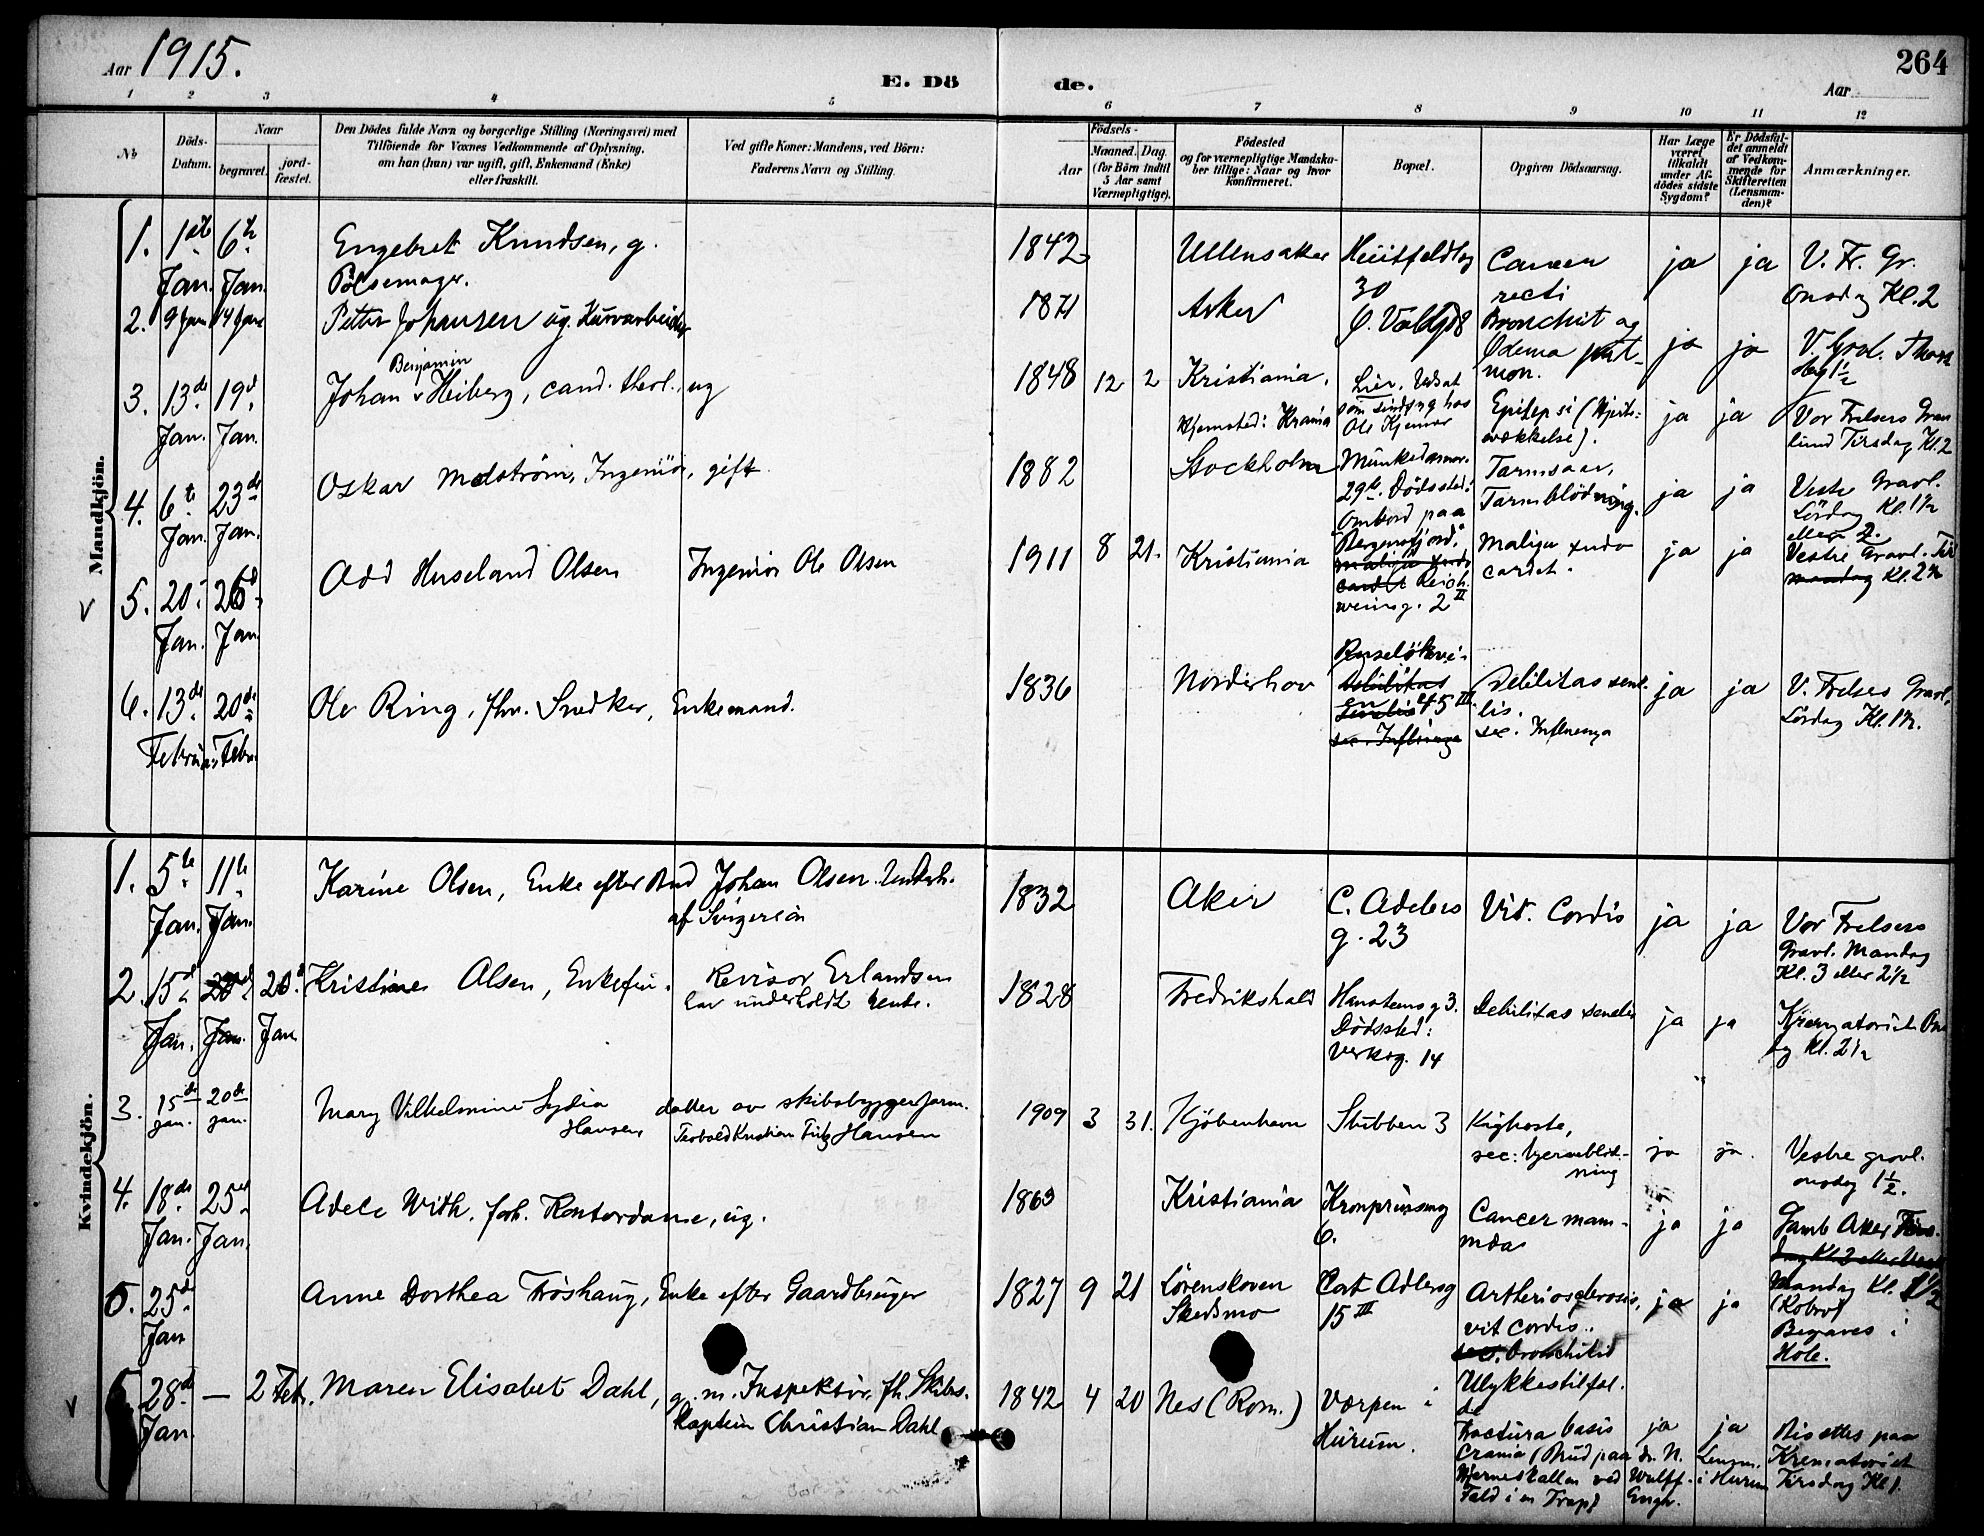 Aar 1915.
E. Dö de.
264
Aar
1 2 3 4 5 6 7 8 9 10 11 12
No
Döds-
Datum.
Naar
begravet.
jord-
fæstet.
Den Dödes fulde Navn og borgerlige Stilling (Næringsvei) med
Tilföiende for Voxnes Vedkommende af Oplysning,
om han (hun) var ugift, gift, Enkemand (Enke)
eller fraskilt.
Ved gifte Koner: Mandens, ved Börn:
Faderens Navn og Stilling.
Födsels-
Aar
Maaned. Dag.
(for Börn indtil
5 Aar samt
Værnepligtige).
Födested
og for værnepligtige Mandska-
ber tillige: Naar og hvor
Konfirmeret.
Bopæl.
Opgiven Dödsaarsag.
Har Læge
været
tilkaldt
under Af-
dödes sidste
Sygdom?
Er Dödsfal-
det anmeldt
af Vedkom-
mende for
Skifteretten
(Lensman-
den)?
Anmærkninger.
Mandkjön.
1. 1ste Jan. 6te Jan.
Engebret Knudsen, g.
Pölsemager.
1842
Ullensaker
Huitfeldtsg
30
Cancer
recti
ja ja
V. Fr. Gr.
Onsdag Kl. 2
2. 9 Jan 14 Jan
Petter Johansen ug. Kurvarbeider
1871
Asker
Bronchit og
Ödema pul-
mon.
ja ja
V. Gravl.
3. 13de Jan. 19d Jan.
Benjamin
Johan Heiberg, cand. theol., ug
1848 12 2
Kristiania.
Hjemsted: Krania
Lier.
Epilepsi (Hjerte-
ja ja
Vor Frelsers Grav
lund Tirsdag Kl. 2
4. 6te Jan. 23de Jan.
Oskar Modström, Ingeniör, gift
1882
Stockholm
Munkedamsv.
29b. Dödssted:
Ombord paa
"Bergensfjord"
Tarmsaar,
Tarmblödning.
ja ja
Vestre Gravl.
Lördag Kl. 1½
eller 2.
5. 20de Jan. 26d Jan.
Odd Huseland Olsen
Ingeniör Ole Olsen
1911 8 21.
Kristiania
2 II
Malign endo
cardit.
ja ja
Vestre Gravl. Tirs
mandag Kl. 2½
6. 13de Februar 20de Febr.
Ole Ring, fhv. Snedker, Enkemand.
1836
Norderhov
Ruselökvei-
en 45 III.
Debilitas seni-
lis.
sec. Influenza
ja ja
V. Frelsers Gravl.
Lördag Kl. 1½.
Kvindekjön.
1. 5te Jan. 11te Jan.
Karine Olsen, Enke efter
Johan Olsen. Underh.
af Svigersön
1832
Aker
C. Adelers
g. 23
Vit. Cordis
ja ja
Vor Frelsers
Gravl. Mandag
Kl. 3 eller 2½
2. 15d Jan. 20d Jan. 20d Jan
Kristine Olsen, Enkefru.
Revisor Erlandsen
har underholdt hende.
1828
Fredrikshald
Hanstensg 3.
Dödssted:
Verksg. 14
Debilitas senilis
ja ja
Krematoriet Ons
dg Kl. 2½
3. 15de jan. 20de jan.
Mary Vilhelmine Lydia
Hansen
datter av skibsbyggerform.
Hansen
1909 3 31.
Kjöbenhavn
Stubben 3
Kighoste,
sec: hjerneblöd-
ning
ja ja.
Vestre gravl.
onsdag 1½.
4. 18de Jan. 25de Jan.
Adele With, forh. Kontordame, ug.
1863
Kristiania
Kronprinsensg
6.
Cancer mam-
ja ja
Gamle Aker Tirs-
Mandag Kl. 1½
5. 25d Jan
Anne Dorthea Fröshaug, Enke efter Gaardbruger
1827 9 21
Lörenskoven
Skedsmo
Cort Adlersg
15 III
Artheriosclerosis,
vit cordis.
sec. bronchitid
ja ja
Begraves i
Hole.
6 28de Jan — 2 Feb.
Maren Elisabet Dahl,
g. m. Inspektör, fh. Skibs-
kaptein Christian Dahl
1842 4 20
Nes (Rom.)
Værpen i
Hurum.
Ulykkestilfel.
de
Fractura basis
crania (Brud paa
Hjerneskallen ved
Fald i en Trap)
ja
dr. N.
Wulff-
Engh.
ja
Lensm.
i Hurum
Bisættes paa
Krematoriet
Tirsdag Kl 1.